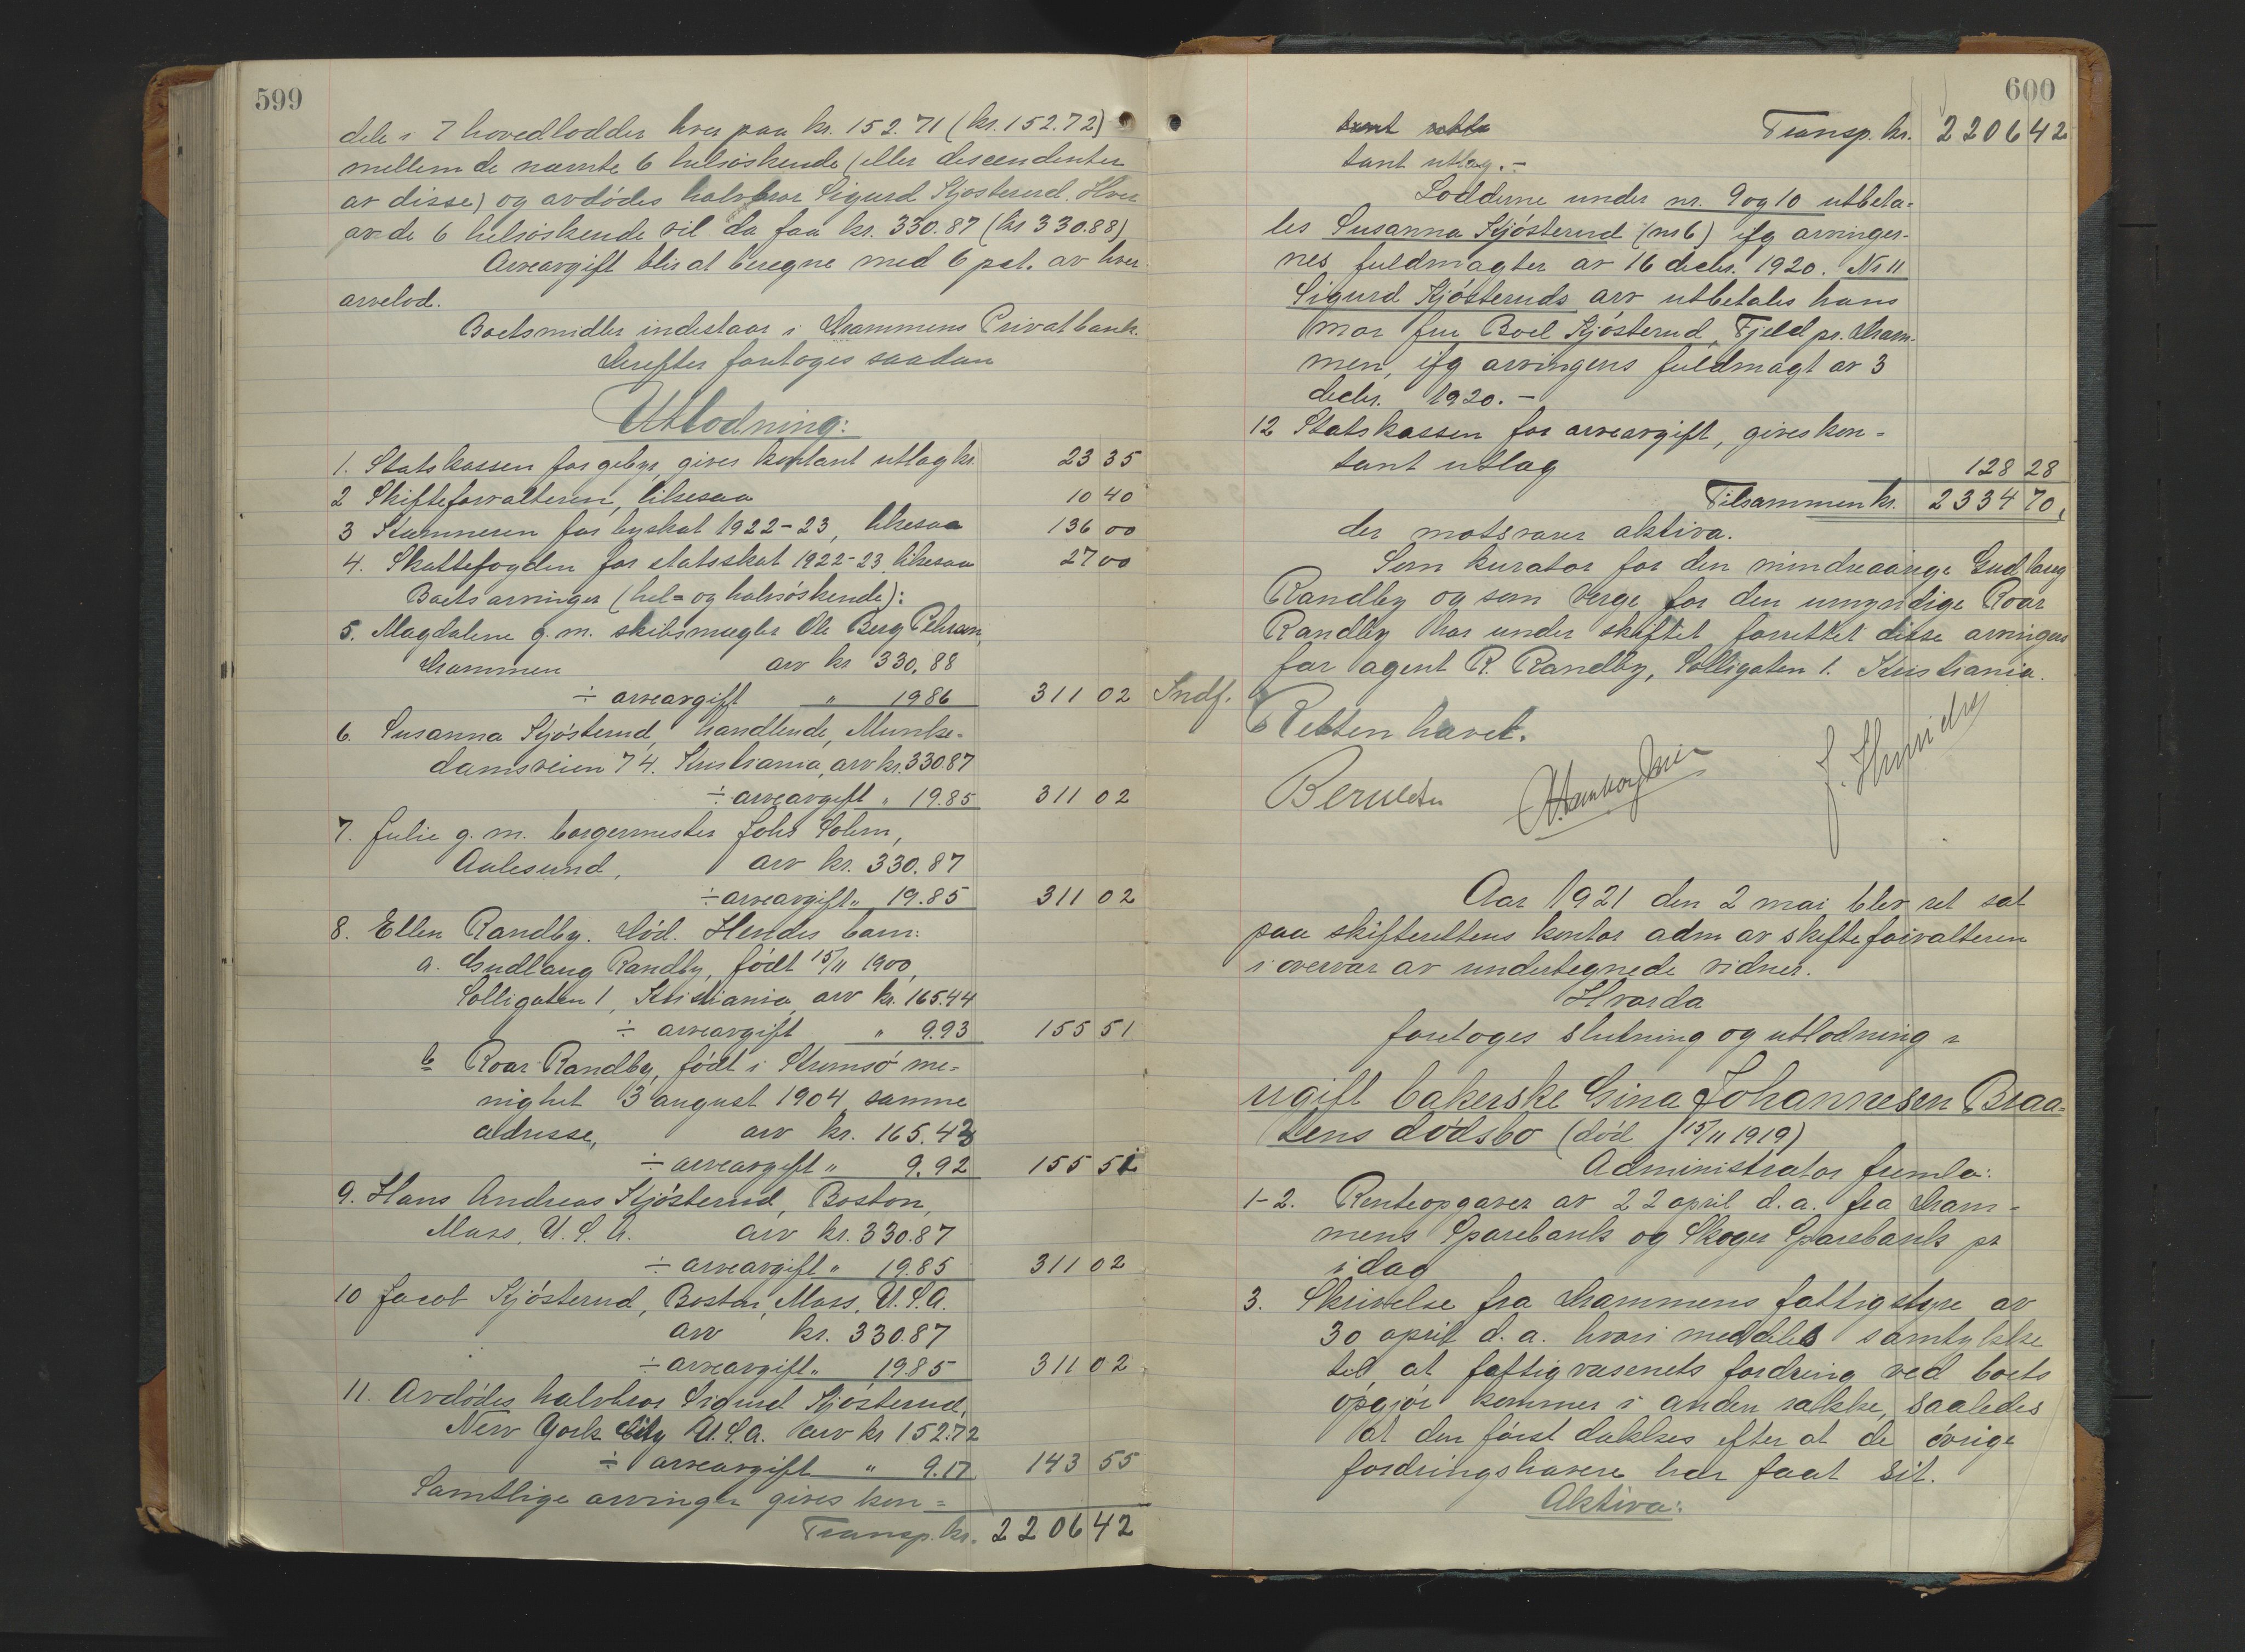 599
dele i 7 hovedlodder hver paa kr. 152.71 (kr. 152.72)
mellem de nævnte 6 helsøskende (eller descendenter
av disse) og avdødes halvbror Sigurd Kjøsterud. Hver
av de 6 helsøskende vil da faa kr. 330.87 (kr 330.88)
Arveavgift blir at beregne med 6 pct. av hver
arvelod.
Boets midler indestaar i Drammens Privatbank.
Derefter foretoges saadan
Utlodning:
1. Statskassen for gebyr, gives kontant utlag kr. 23 35
2 Skifteforvalteren, likesaa 10 40
3 Kæmneren for byskat 1922-23, likesaa 136 00
4. Skattefogden for statsskat 1922-23 likesaa 27 00
Boets arvinger (hel= og halvsøskende):
5. Magdalene g. m. skibsmægler Ole Berg Pehrson,
Drammen arv kr 330.88
÷ arveavgift " 19 86 311 02
6. Susanna Kjøsterud, handlende, Munke=
damsveien 74. Kristiania, arv kr. 330.87
÷ arveavgift " 19.85 311 02
7. Julie g. m. borgermester Johs Solem,
Aalesund, arv kr. 330.87
÷ arveavgift " 19.85 311 02
8. Ellen Randby. Død. Hendes barn:
a. Gudlaug Randby, født 15/11 1900,
Solligaten 1, Kristiania, arv kr. 165.44
÷ arveavgift " 9.93 155 51
b Roar Randby, født i Strømsø me=
nighet 3 august 1904 samme
adresse, arv kr. 165.43
÷ arveavgift " 9.92 155 51
9. Hans Andreas Kjøsterud, Boston,
Mass. U. S. A. arv kr. 330.87
÷ arveavgift " 19.85 311 02
10 Jacob Kjøsterud, Boston, Mass. U. S. A.
arv kr. 330.87
÷ arveavgift " 19.85 311 02
11. Avdødes halvbror Sigurd Kjøsterud,
New York City U. S. A. arv kr 152.72
÷ arveavgift " 9.17 143 55
Samtlige arvinger gives kon=
Transp. kr. 2206 42
600
Transp. kr. 2206 42
tant utlag.-
Lodderne under nr. 9 og 10 utbeta=
les Susanna Kjøsterud (nr 6) ifg arvinger-
nes fuldmagter av 16 decbr. 1920. Nr 11
Sigurd Kjøsteruds arv utbetales hans
mor fru Boel Kjøsterud, Fjeld pr. Dram-
men, ifg arvingens fuldmagt av 3
decbr. 1920.-
12 Statskassen for arveavgift, gives kon=
tant utlag 128 28
Tilsammen kr. 2334 70,
der motsvarer aktiva.
Som kurator for den mindreaarige Gudlaug
Randby og som verge for den umyndige Roar
Randby har under skiftet forrettet disse arvingers
far agent R. Randby, Solligaten 1. Kristiania.
Indf.
Retten hævet.
Aar 1921 den 2 mai blev ret sat
paa skifterettens kontor adm av skifteforvalteren
i overvær av undertegnede vidner.
Hvorda
foretoges slutning og utlodning i
ugift bakerske Gina Johannesen Braa=
tens dødsbo (død 15/11 1919)
Administrator fremla:
1-2. Renteopgaver av 22 april d. a. fra Dram=
mens Sparebank og Skoger Sparebank pr
i dag
3. Skrivelse fra Drammens fattigstyre av
30 april d. a. hvori meddeles samtykke
til, at fattigvæsenets fordring ved boets
opgjør kommer i anden række, saaledes
at den først dækkes efter at de øvrige
fordringshavere har faat sit.
Aktiva: